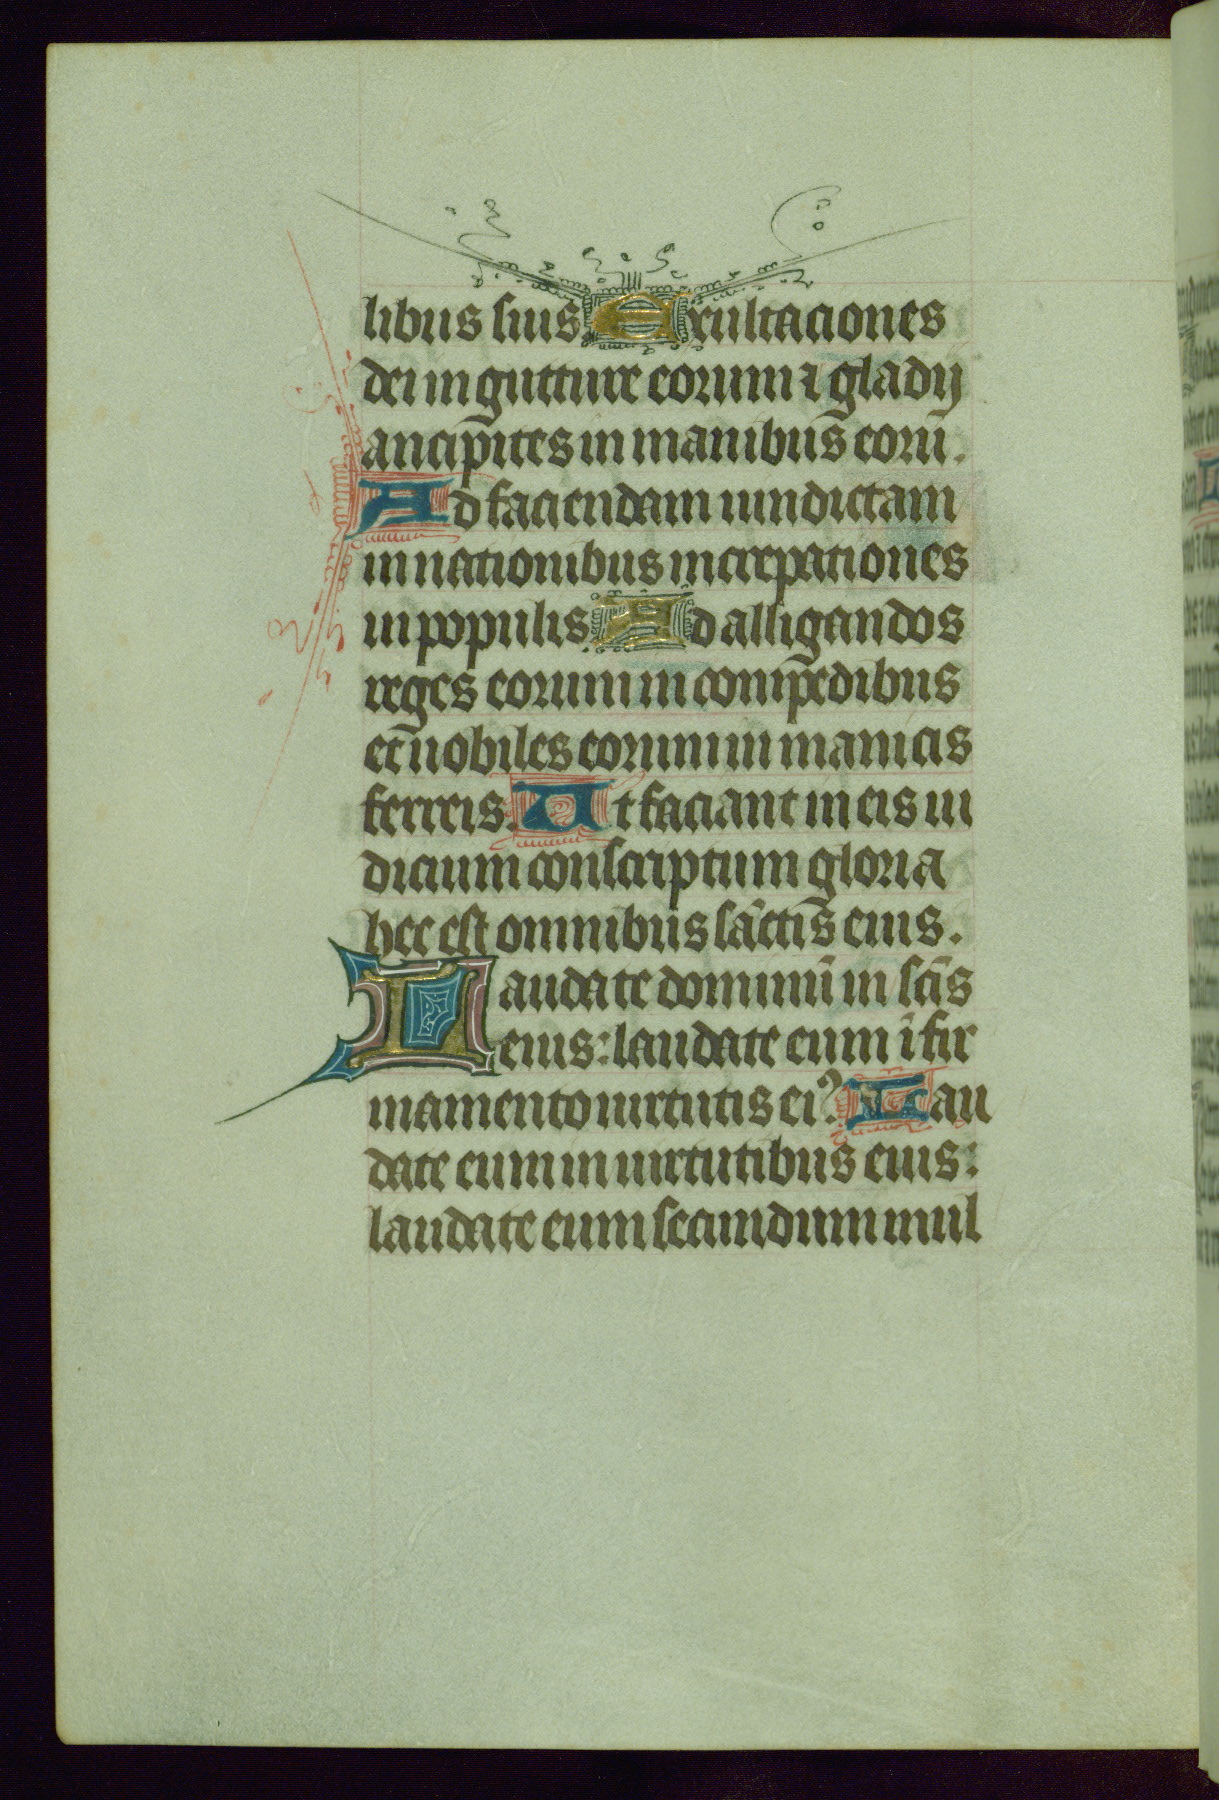 libus suis. Exultaciones
dei in gutture eorum ⁊ gladij
ancipites in manibus eorū.
Ad faciendam uindictam
in nationibus increpationes
in populis. Ad alligandos
reges eorum in compedibus
et nobiles eorum in manicis
ferreis. Ut faciant in eis iu
dicium conscriptum gloria
hec est omnibus sāctis eius.
Laudate dominū in scīs
eius: laudate eum ī fir
mamento uirtutis eiꝰ. Lau
date eum in uirtutibus eius:
laudate eum secundum mul